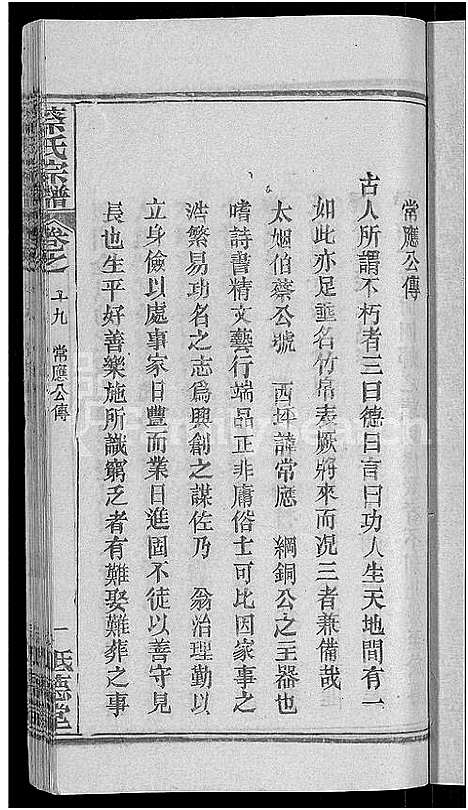 常應公傳
古人所謂不朽者三曰德曰言曰功人生天地間有一
如此亦足垂名竹帛表厥將來而況三者兼備哉
太姻伯蔡公號 西坪諱常應 綱銅公之主器也
嗜詩書精文藝行端品正非庸俗士可比因家事之
浩繁易功名之志爲興創之謀佐乃 翁治理勤以
立身儉以處事家日豐而業日進固不徒以善守見
長也生平好善樂施所識窮乏者有難娶難葬之事
蔡氏宗譜
卷之十九 常應公傳
一
FamilySearch